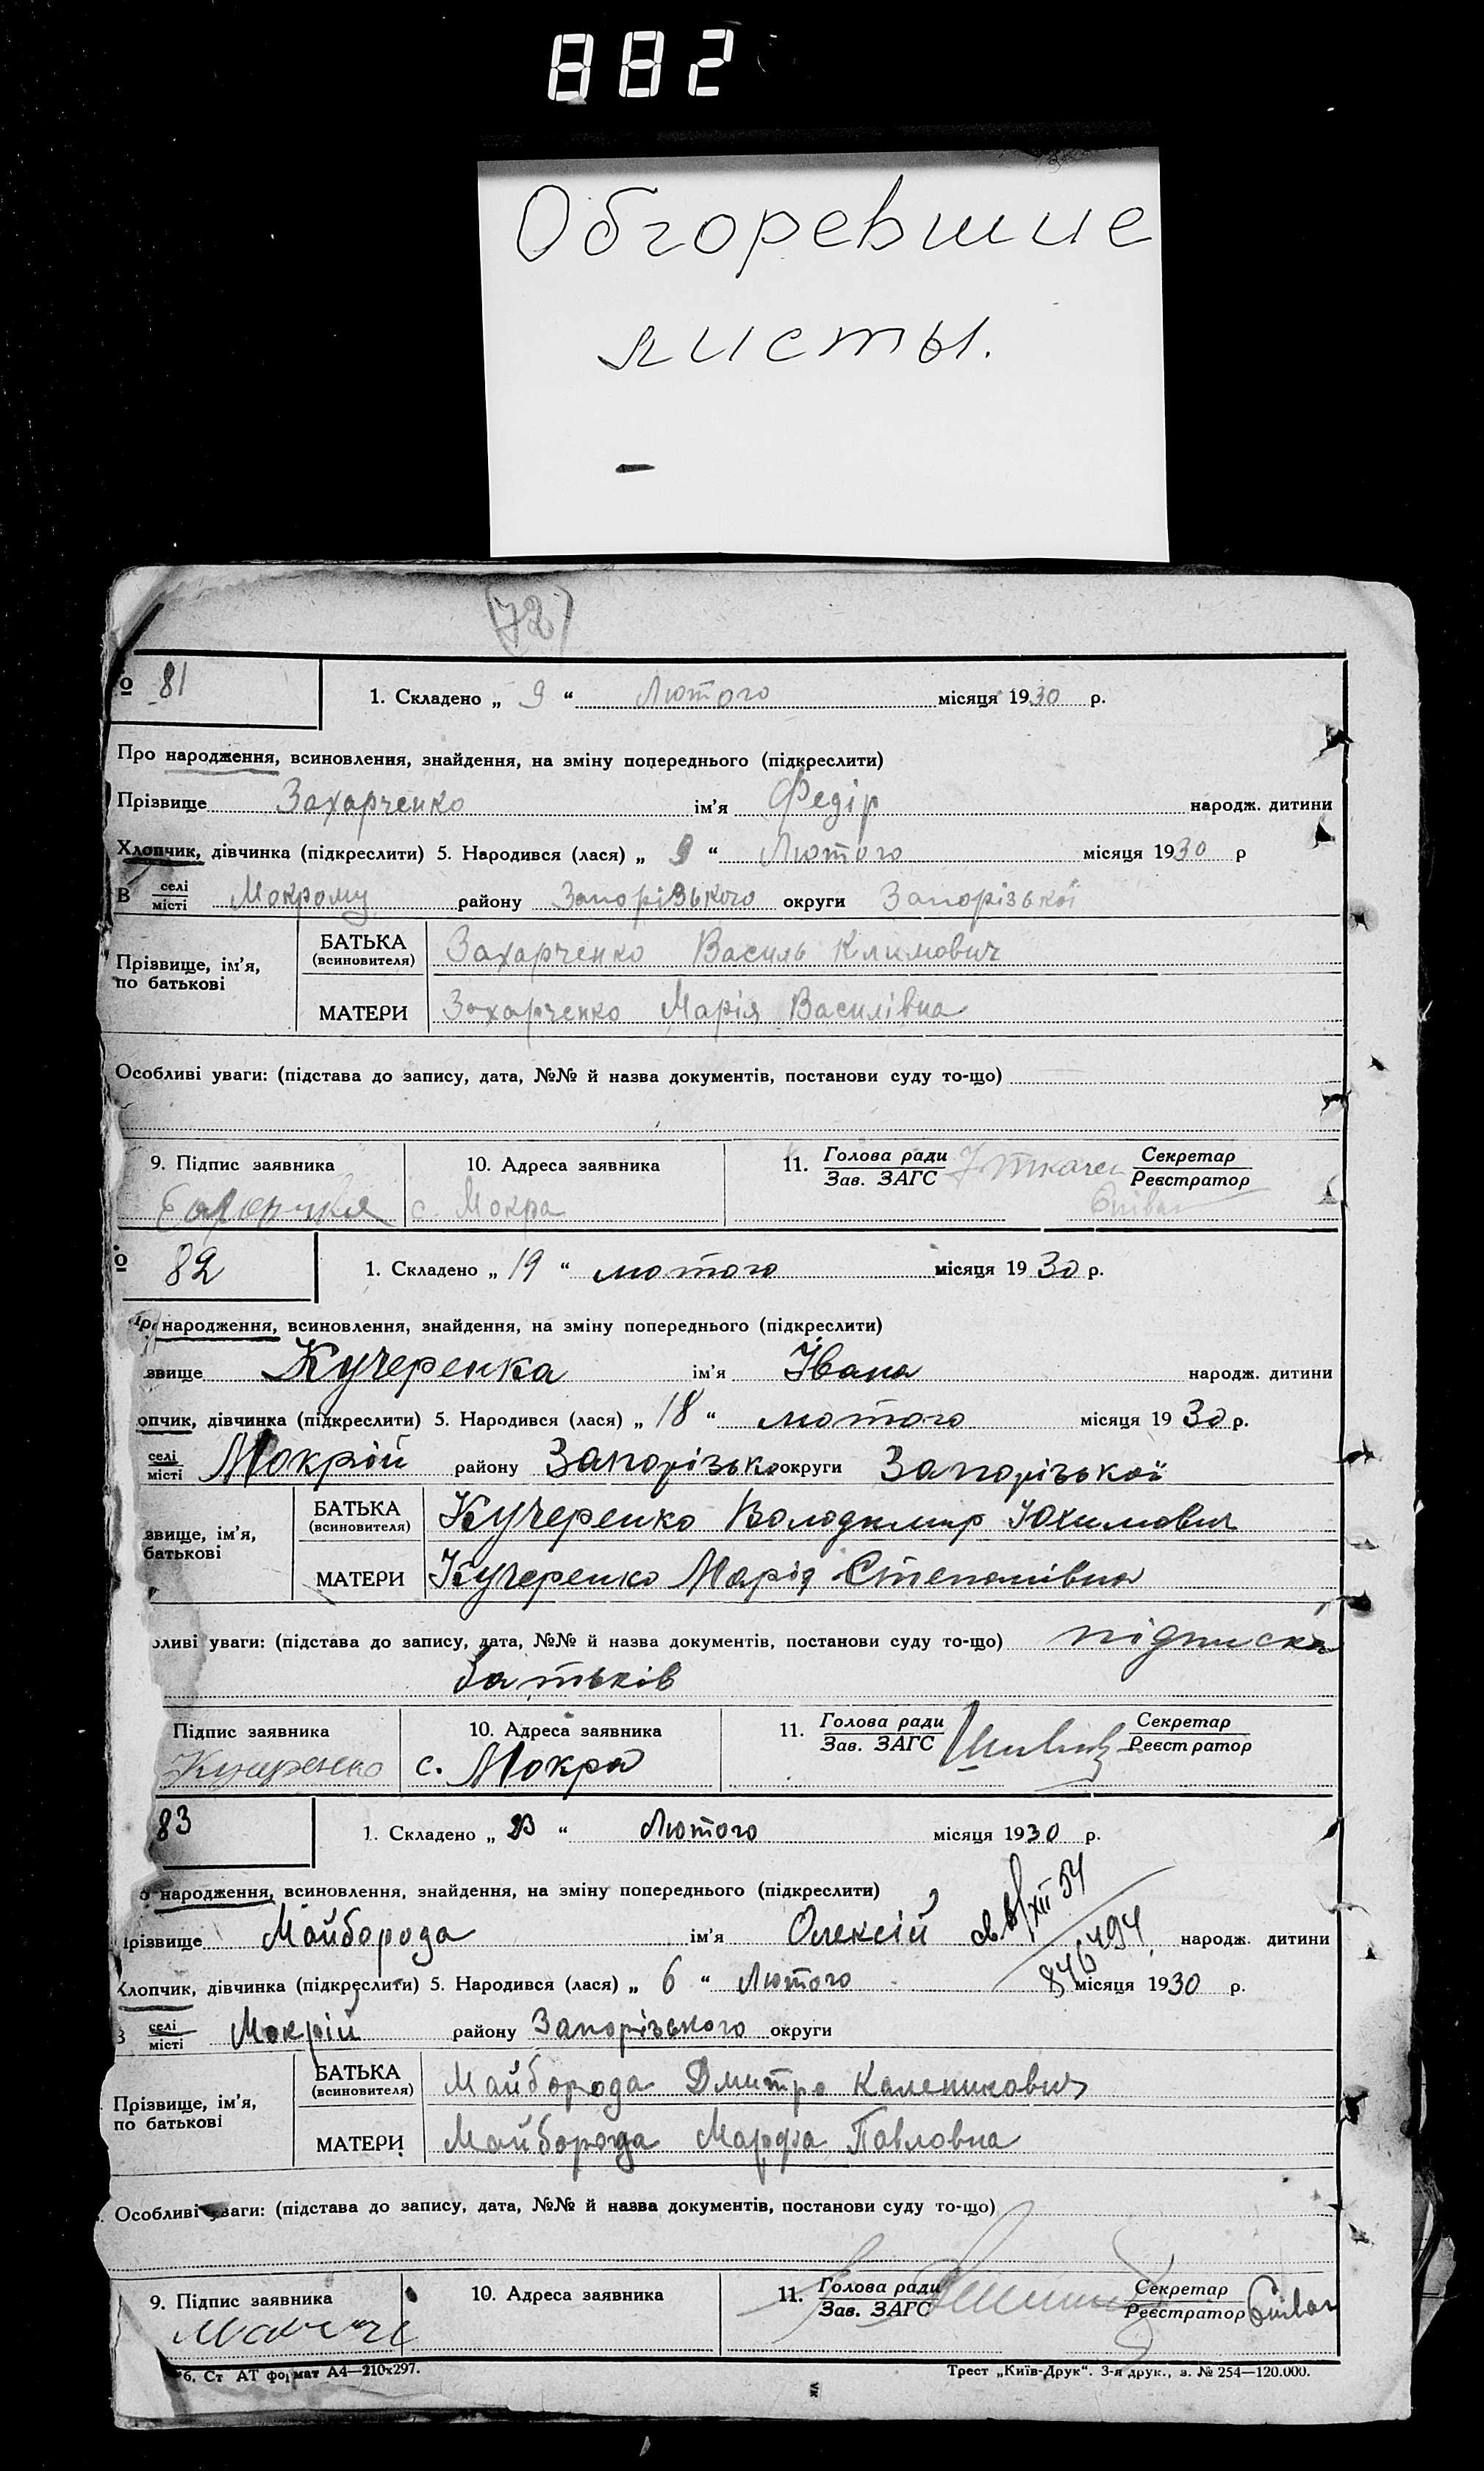 882
Обгоревшие
листы.
(72)
о 81
1. Складено „ 9 “ Лютого місяця 1930 р.
Про народження, всиновлення, знайдення, на зміну попереднього (підкреслити)
Прізвище Захарченко ім’я Федір народж. дитини
Хлопчик, дівчинка (підкреслити) 5. Народився (лася) „ 9 “ Лютого місяця 1930 р
В селі/місті Мокрому району Запорізького округи Запорізької
Прізвище, ім’я, по батькові
БАТЬКА (всиновителя) Захарченко Василь Климович
МАТЕРИ Захарченко Марія Василівна
Особливі уваги: (підстава до запису, дата, №№ й назва документів, постанови суду то-що)
9. Підпис заявника 10. Адреса заявника 11. Голова ради/Зав. ЗАГС Ткачен Секретар/Реєстратор
с. Мокра
о 82
1. Складено „ 19 “ лютого місяця 1930 р.
народження, всиновлення, знайдення, на зміну попереднього (підкреслити)
звище Кучеренка ім’я Івана народж. дитини
опчик, дівчинка (підкреслити) 5. Народився (лася) „ 18 “ лютого місяця 1930 р.
селі/місті Мокрій району Запорізько округи Запорізької
звище, ім’я, батькові
БАТЬКА (всиновителя) Кучеренко Володимир Юхимович
МАТЕРИ Кучеренко Марія Степанівна
ливі уваги: (підстава до запису, дата, №№ й назва документів, постанови суду то-що) підписка
батьків
Підпис заявника 10. Адреса заявника 11. Голова ради/Зав. ЗАГС Секретар/Реєстратор
Кучеренко с. Мокра
83
1. Складено „ 23 “ Лютого місяця 1930 р.
о народження, всиновлення, знайдення, на зміну попереднього (підкреслити)
Прізвище Майборода ім’я Олексій народж. дитини
XII 54
846494
Хлопчик, дівчинка (підкреслити) 5. Народився (лася) „ 6 “ Лютого місяця 1930 р.
В селі/місті Мокрій району Запорізького округи
Прізвище, ім’я, по батькові
БАТЬКА (всиновителя) Майборода Дмитро Каленикович
МАТЕРИ Майборода Марфа Павловна
Особливі уваги: (підстава до запису, дата, №№ й назва документів, постанови суду то-що)
9. Підпис заявника 10. Адреса заявника 11. Голова ради/Зав. ЗАГС Секретар/Реєстратор
б. Ст АТ формат А4—210х297. Трест „Київ-Друк“. 3-я друк., з. № 254—120.000.